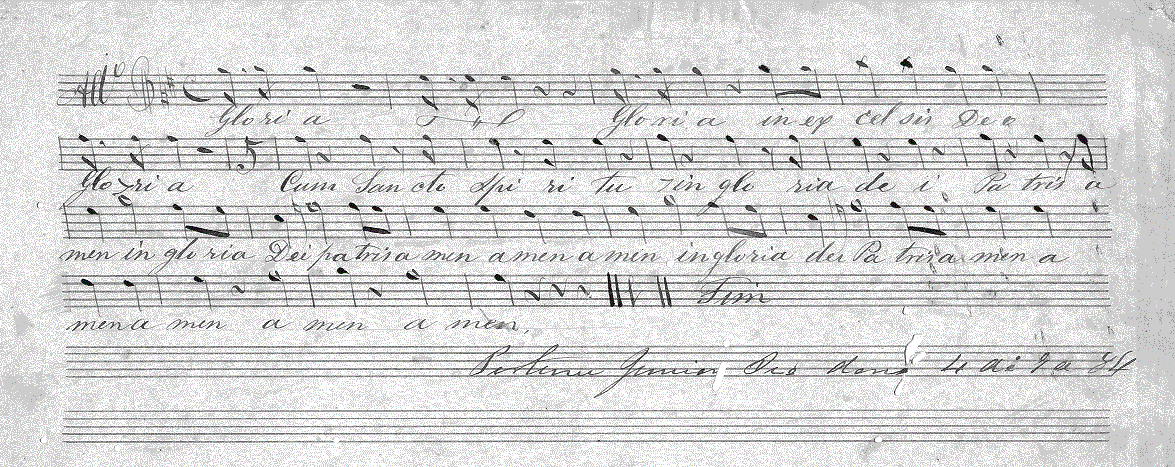 All.o
Gloria Gloria in ex cel sis Deo
Gloria 5 Cum Sancto Spi ri tu in glo ria de i Patris a
men in gloria Dei patris a men amen amen in gloria dei Patris a men a
men a men a men a men.
Fim
Junior 4 de